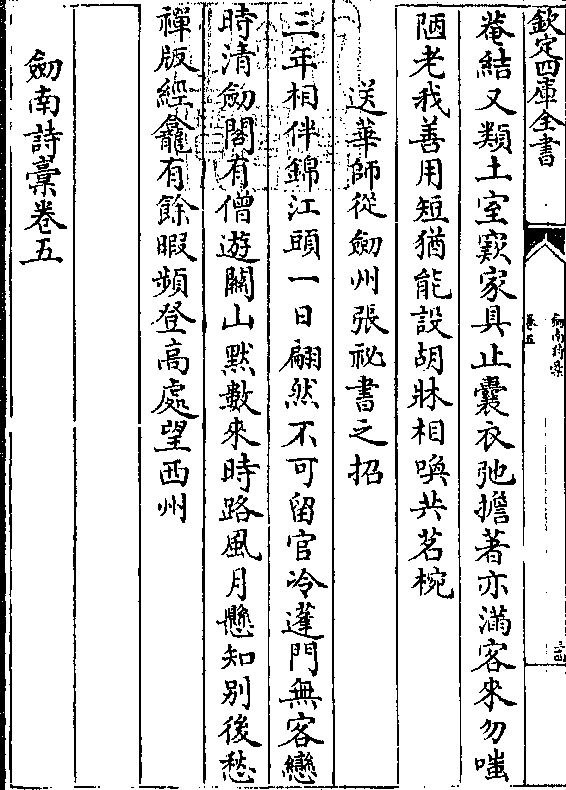 欽定四庫全書
劒南詩藁
卷五
三四
菴結又類土室窾家具止囊衣弛擔著亦滿客來勿嗤
陋老我善用短猶能設胡牀相喚共茗椀
送華師從劒州張祕書之招
三年相伴錦江頭一日翩然不可留官冷蓬門無客戀
時清劒閣有僧遊關山黙數來時路風月懸知別後愁
禪版經龕有餘暇頻登高處望西州
劒南詩藁卷五